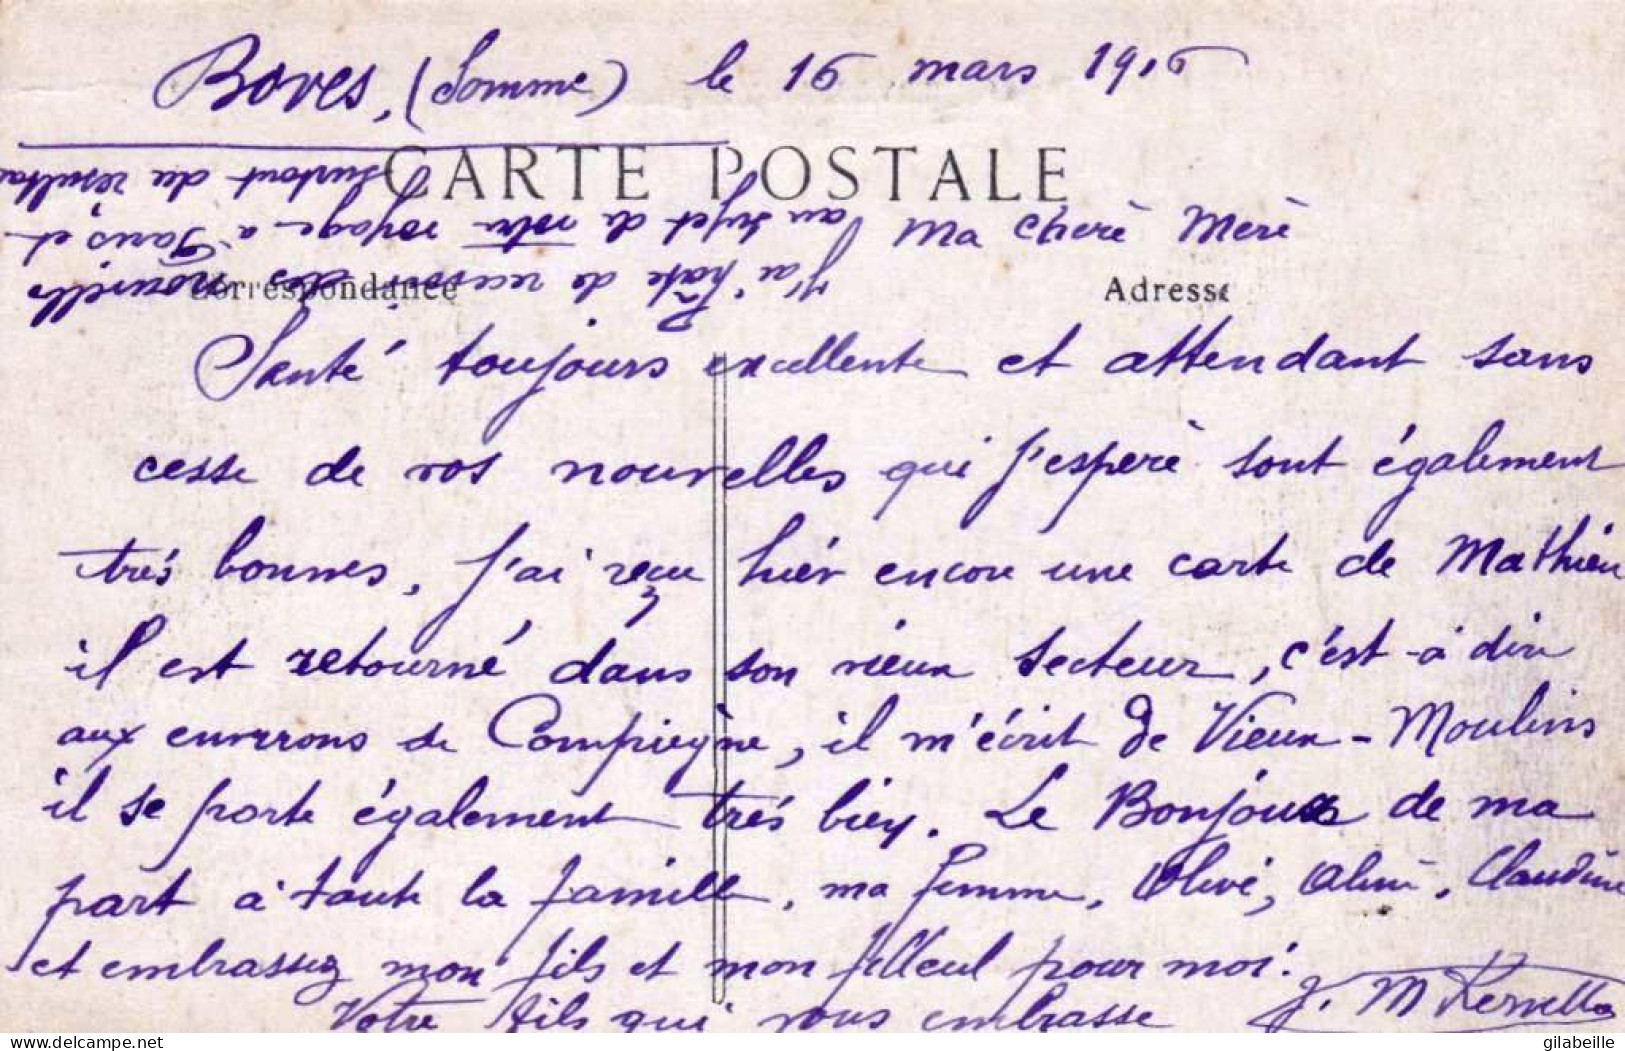 Boves, (Somme) le 16 mars 1916
CARTE POSTALE
Ma chère Mère
Correspondance
Adresse
Santé toujours excellente et attendant sans
cesse de vos nouvelles qui j'esperè sont également
très bonnes, j'ai reçu hiér encore une carte de Mathieu
il est retourné dans son vieux secteur, c'est-à dire
aux environs de Compiègne, il m'écrit de Vieux-Moulins
il se porte également très bien. Le Bonjour de ma
part à toute la famille, ma femme, Olivé, Claudine
et embrassez mon fils et mon filleul pour moi.
Votre fils qui vous embrasse J. M Kervella
J'ai hâte de recevoir des nouvelles
au sujet de votre voyage à Paris, et
surtout du résultat
www.delcampe.net
gilabeille